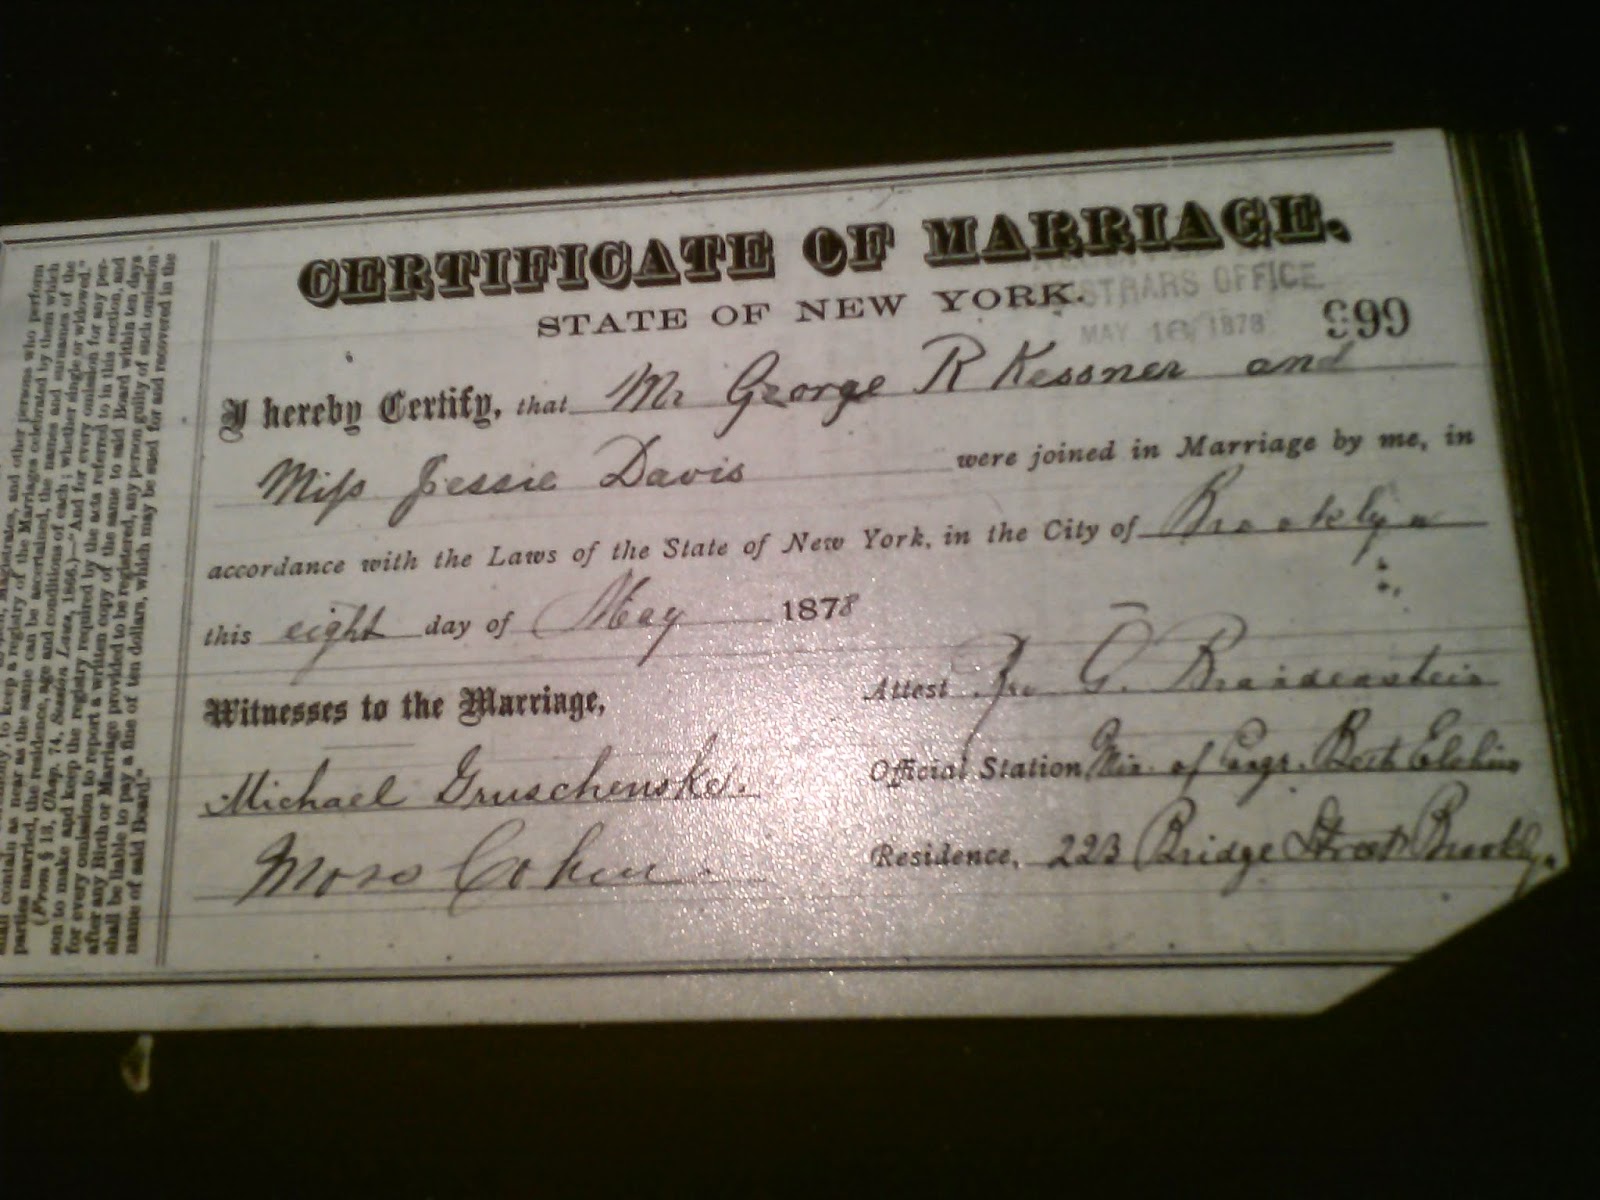 CERTIFICATE OF MARRIAGE.
STATE OF NEW YORK.
STRARS OFFICE
MAY 1878
999
I hereby Certify, that Mr George R Kessner and
Miss Jessie Davis were joined in Marriage by me, in
accordance with the Laws of the State of New York, in the City of Brooklyn
this eight day of May 1878
Witnesses to the Marriage,
Attest G. Brandenstein
Michael Gruschenski.
Official Station Min. of Congr. Beth Elohim
Moss Cohen
Residence, 223 Bridge Street Brookly.
other persons who perform
to keep a registry of the Marriages celebrated by them which
shall contain as near as the same can be ascertained, the names and surnames of the
parties married, the residence, age and conditions of each; whether single or widowed."
(From § 13, Chap. 74, Session Laws, 1866.)—"And for every omission for any per-
son to make and keep the registry required by the acts referred to in this section, and
for every omission to report a written copy of the same to said Board within ten days
after any Birth or Marriage provided to be registered, any person guilty of such omission
shall be liable to pay a fine of ten dollars, which may be sued for and recovered in the
name of said Board."